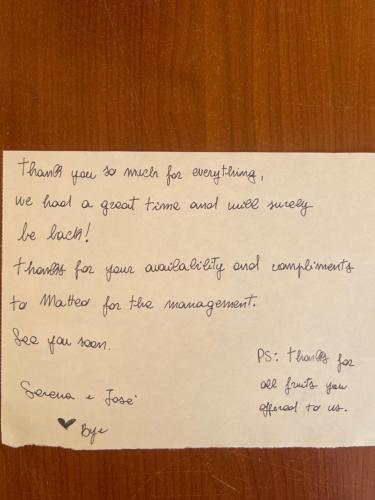 Thanks you so much for everything,
we had a great time and will surely
be back!
Thanks for your availability and compliments
to Matteo for the management.
See you soon.
Serena e José
♥ Bye
PS: thanks for
all fruits you
offered to us.